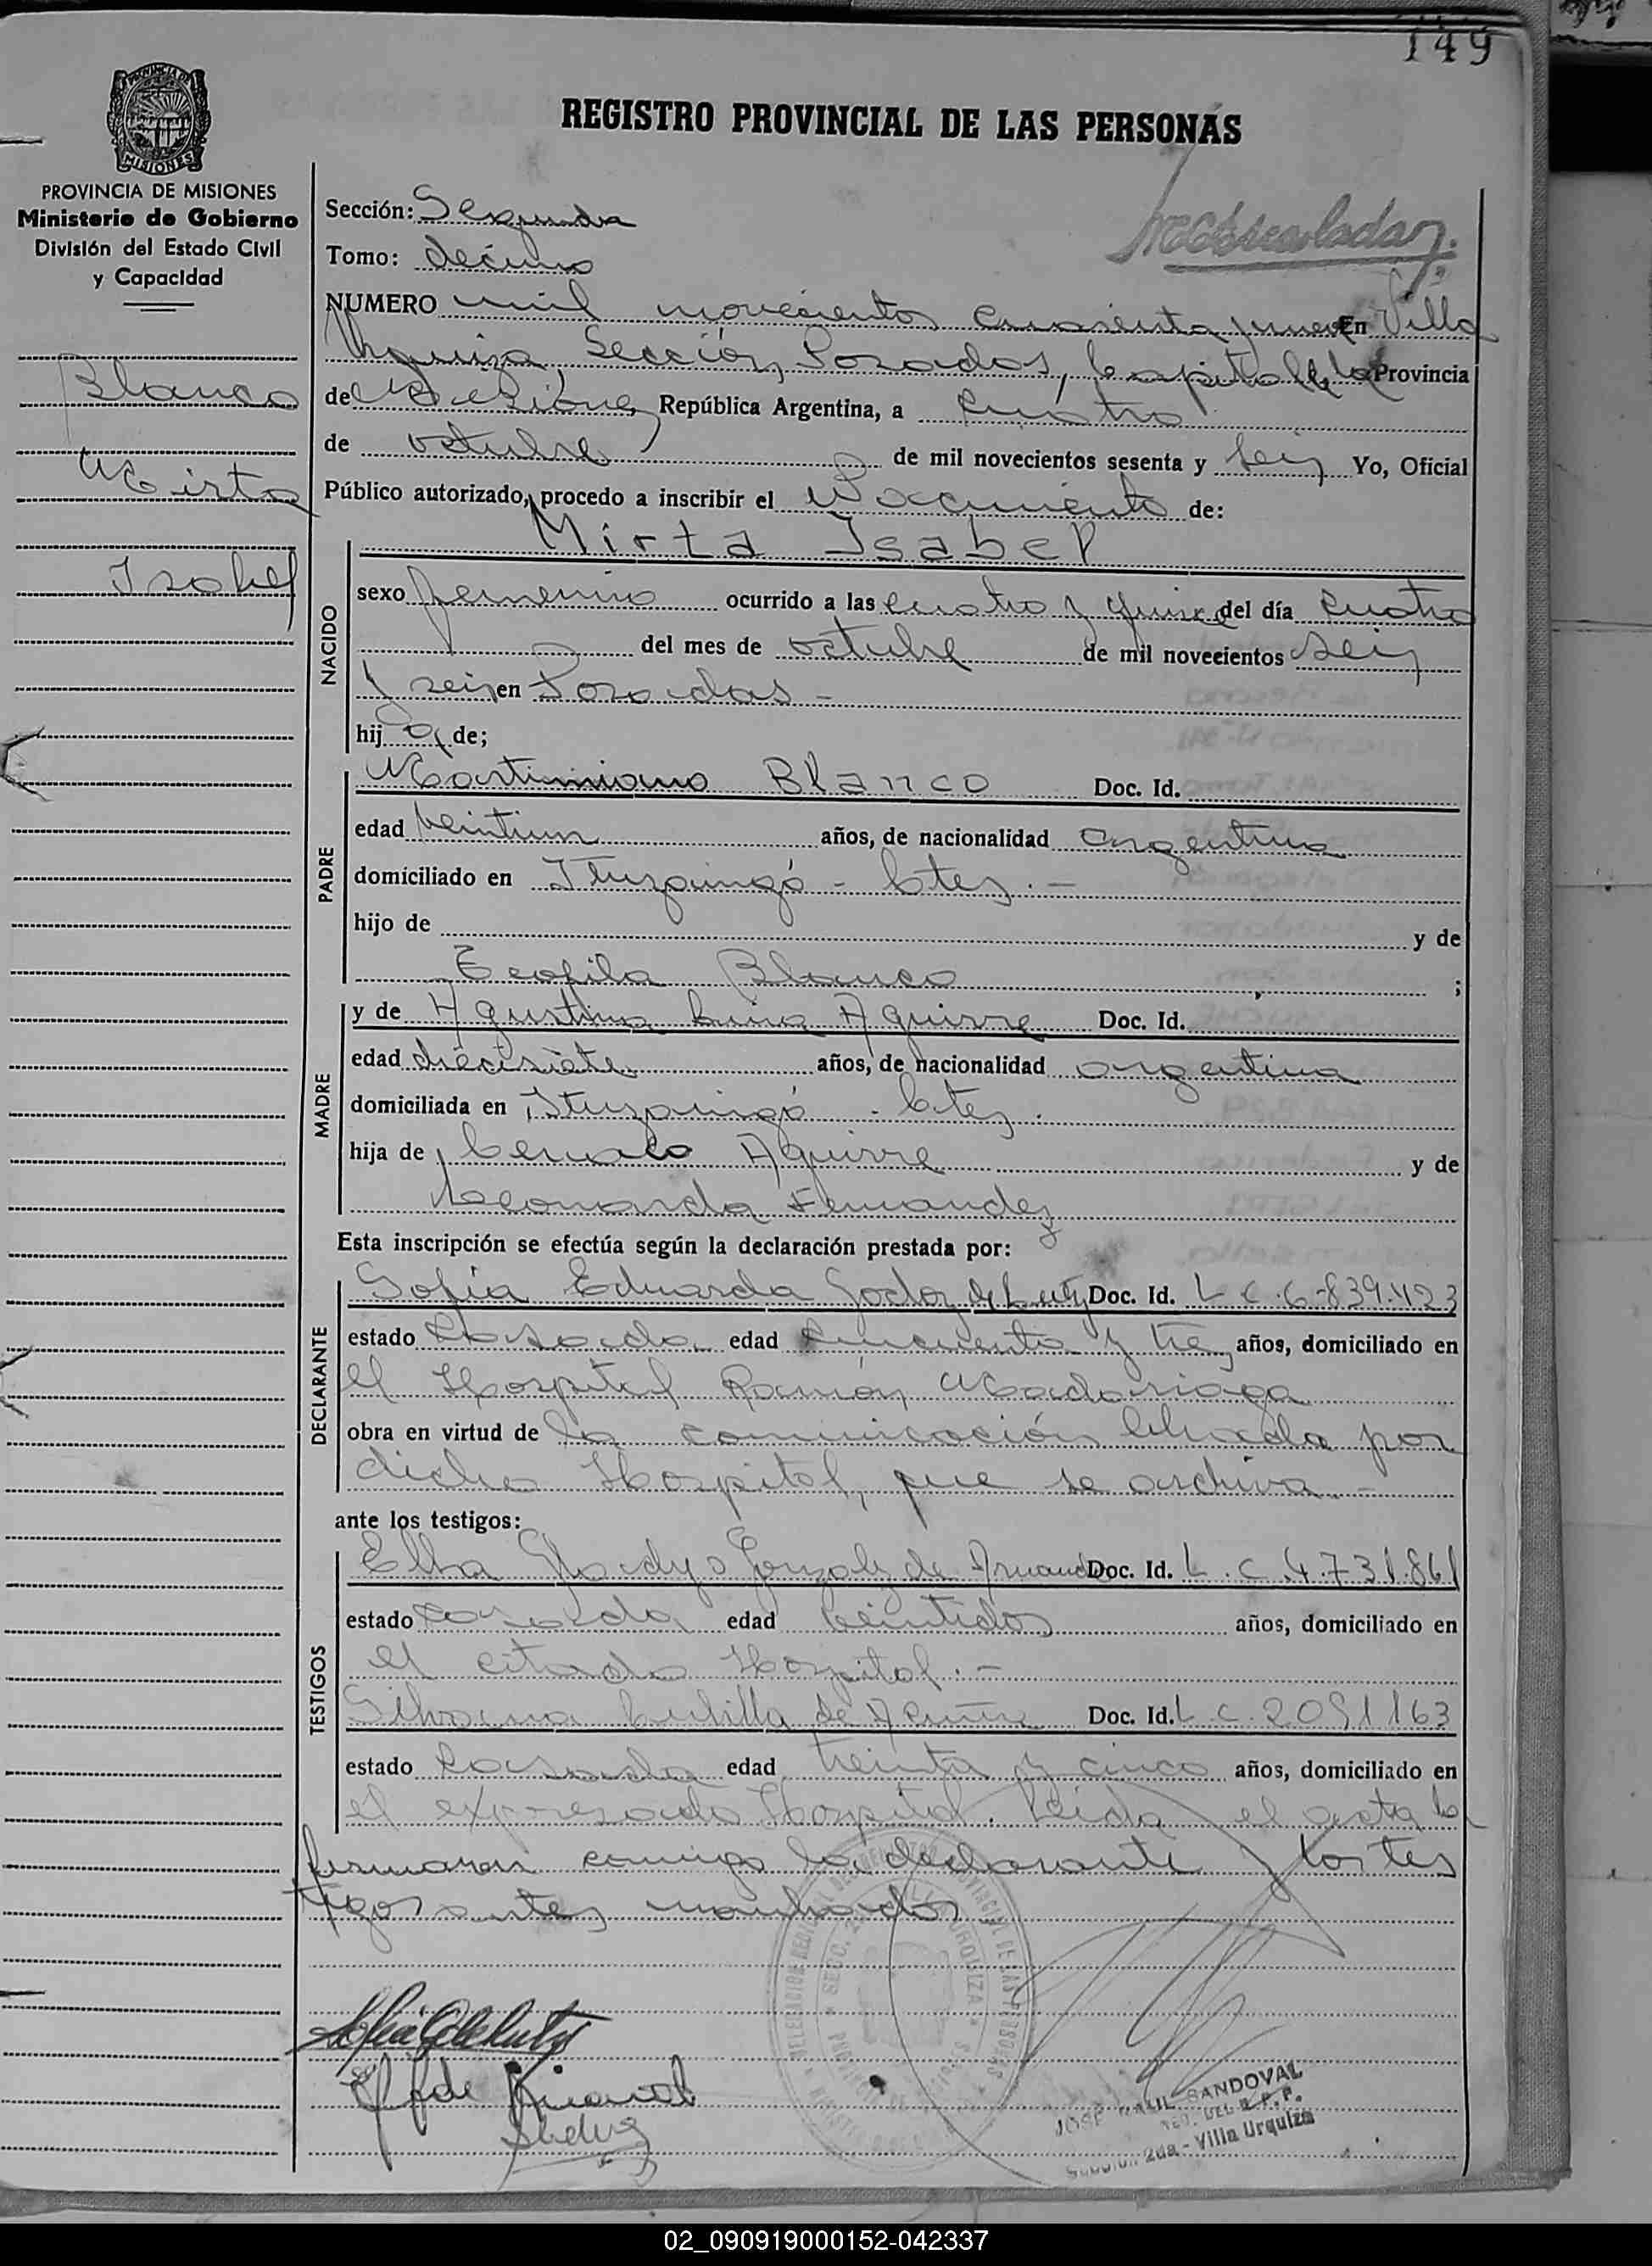 149
REGISTRO PROVINCIAL DE LAS PERSONAS
PROVINCIA DE MISIONES
Ministerio de Gobierno
División del Estado Civil
y Capacidad
Blanco
Mirta
Isabel
Sección: Segunda
Tomo: décimo
NUMERO mil novecientos cuarenta y nueve En Villa
Urquiza, Sección Posadas, Capital de la Provincia
de Misiones República Argentina, a cuatro
de octubre de mil novecientos sesenta y seis Yo, Oficial
Público autorizado, procedo a inscribir el Nacimiento de:
NACIDO
Mirta Isabel
sexo femenino ocurrido a las cuatro y quince del día cuatro
del mes de octubre de mil novecientos seis
y seis en Posadas -
hija de;
PADRE
Martiniano Blanco Doc. Id.
edad veintiun años, de nacionalidad argentina
domiciliado en Ituzaingó - Ctes. -
hijo de y de
Teofila Blanco ;
MADRE
y de Agustina Aguirre Doc. Id.
edad diecisiete años, de nacionalidad argentina
domiciliada en Ituzaingó - Ctes.
hija de Aguirre y de
Leonarda Fernandez
Esta inscripción se efectúa según la declaración prestada por:
DECLARANTE
Sofía Eduarda Godoy de Doc. Id. L C 6.839.423
estado Casada edad cincuenta y tres años, domiciliado en
el Hospital Ramón Madariaga
obra en virtud de la comunicación librada por
dicho Hospital, que se archiva -
ante los testigos:
TESTIGOS
Elba Gladys Gonzalez de Doc. Id. L. C 4.731.861
estado casada edad veintidos años, domiciliado en
el citado Hospital. -
de Acuña Doc. Id. L C. 2091163
estado Casada edad treinta y cinco años, domiciliado en
el expresado Hospital. Leida el acta la
firmaron conmigo la declarante y los tes
tigos antes nombrados
JOSE SANDOVAL
DEL R. P. P.
Sección 2da - Villa Urquiza
02_090919000152-042337